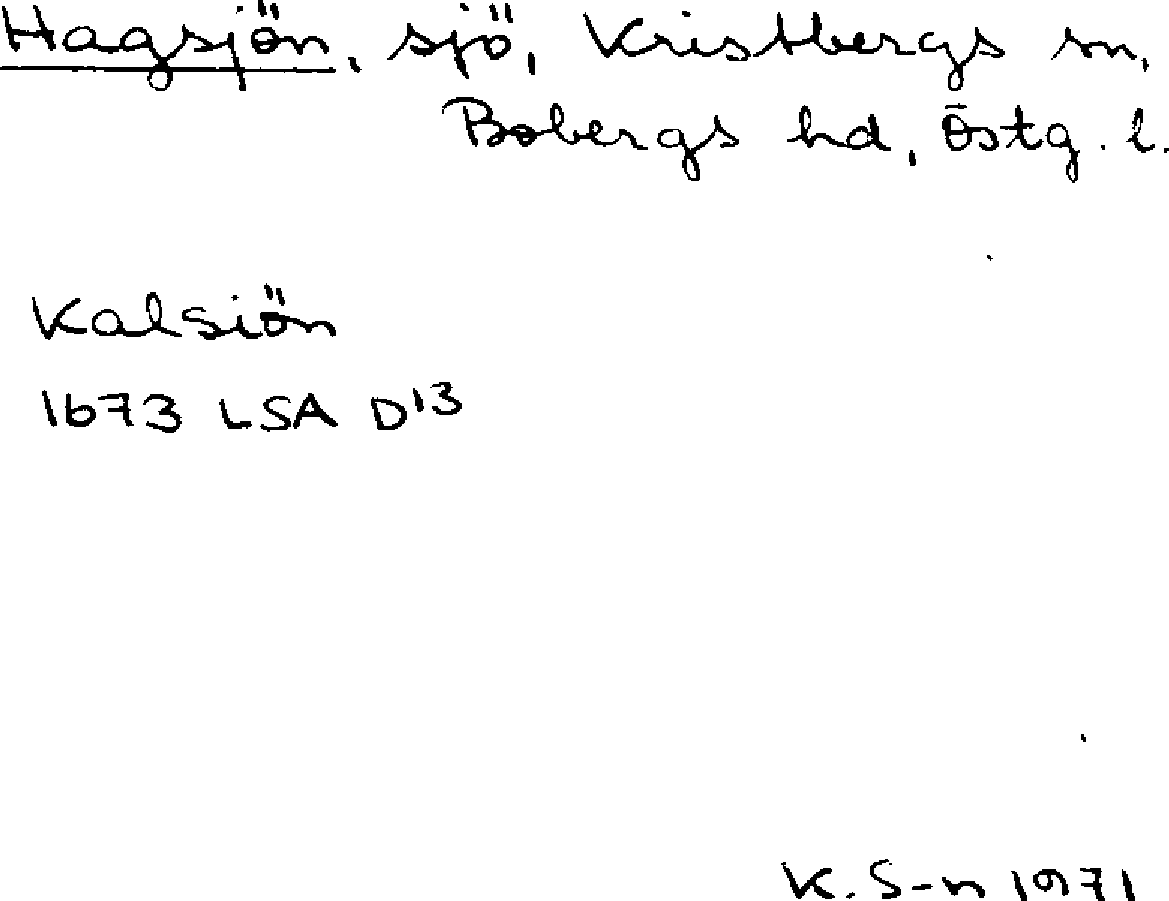 Hagsjön, sjö, Kristbergs sn,
Bobergs hd, Östg. l.
Kalsiön
1673 LSA D13
K. S-n 1971